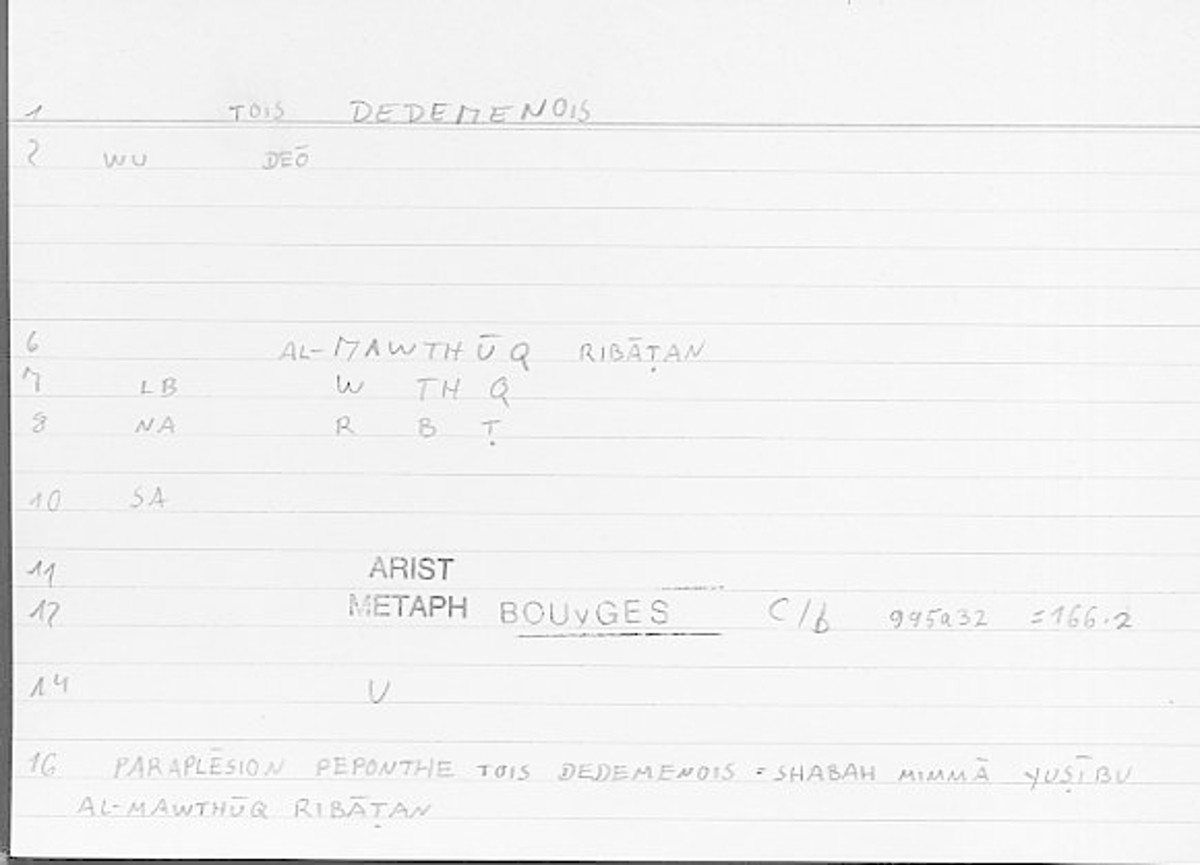 1 TOIS DEDEMENOIS
2 WU DEŌ
6 AL-MAWTHŪQ RIBĀṬAN
7 LB W TH Q
8 NA R B Ṭ
10 SA
11 ARIST
12 METAPH BOUYGES C/b 995a32 =166.2
14 V
16 PARAPLĒSION PEPONTHE TOIS DEDEMENOIS = SHABAH MIMMĀ YUṢĪBU
AL-MAWTHŪQ RIBĀṬAN